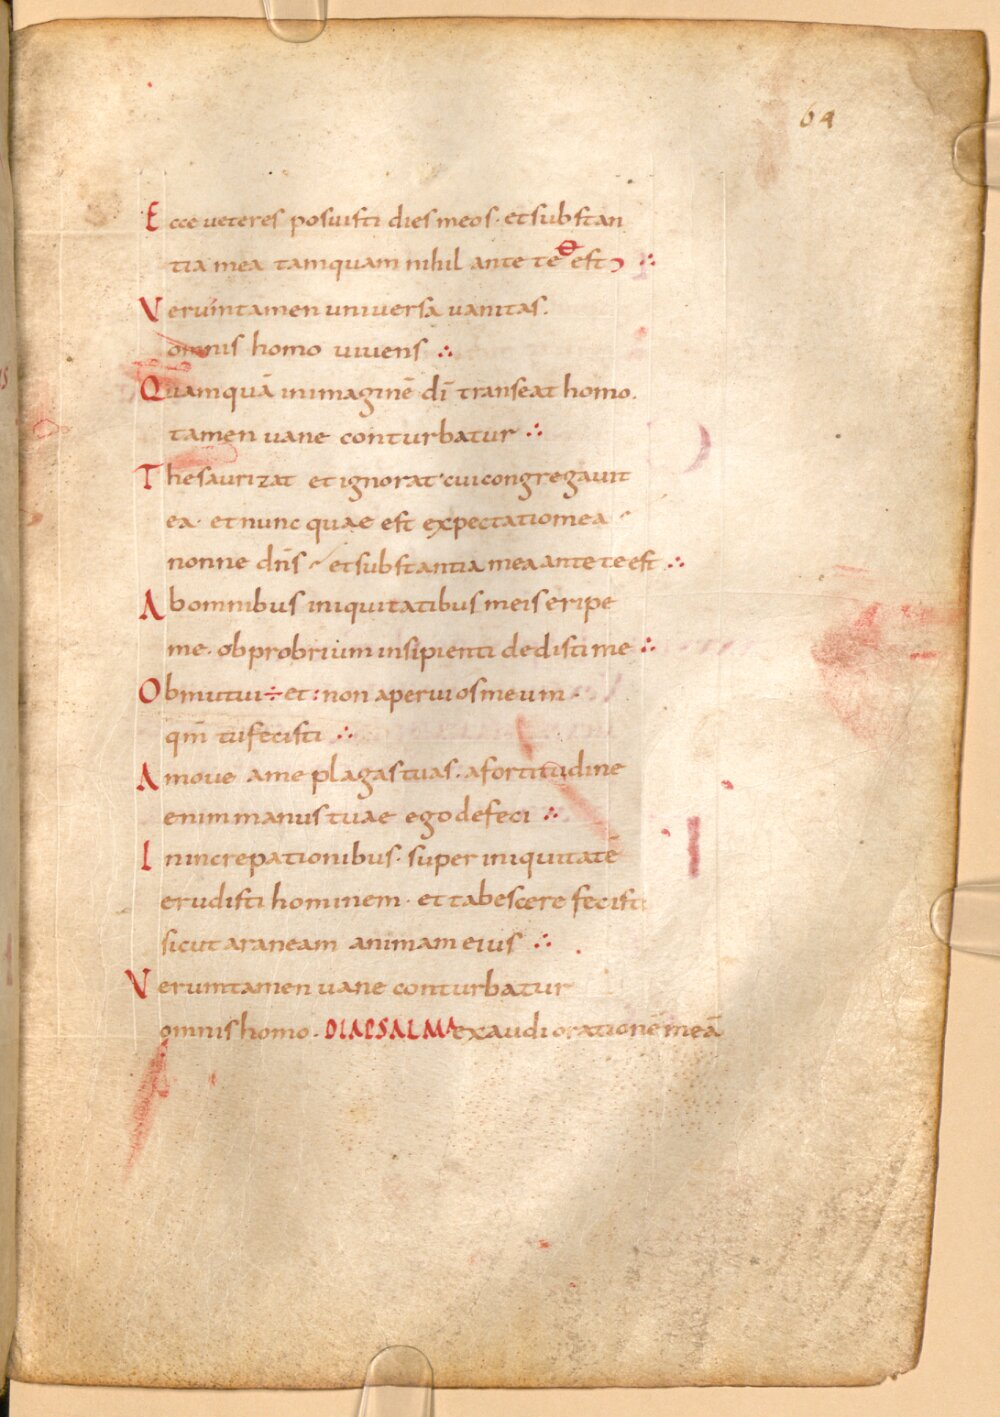 64
Ecce veteres posuisti dies meos · et substan
tia mea tamquam nihil ante te est ∴
Veruntamen universa vanitas.
omnis homo vivens ∴
Quamquā in imaginē dī transeat homo.
tamen vane conturbatur ∴
Thesaurizat et ignorat cui congregavit
ea · et nunc quae est expectatio mea
nonne dn̄s et substantia mea ante te est ∴
Ab omnibus iniquitatibus meis eripe
me · obprobrium insipienti dedisti me ∴
Obmutui ÷ et : non aperui os meum ·
qm̄ tu fecisti ∴
Amove a me plagas tuas · a fortitudine
enim manus tuae ego defeci ∴
In increpationibus · super iniquitatē
erudisti hominem · et tabescere fecisti
sicut araneam animam eius ∴
Veruntamen vane conturbatur
omnis homo · DIAPSALMA exaudi orationē meā